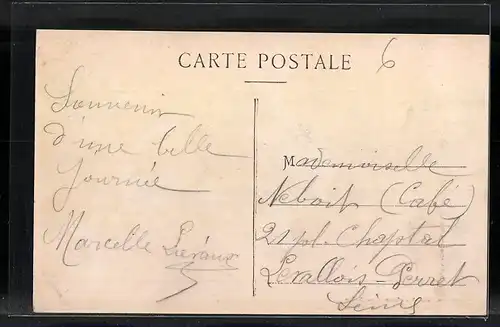 CARTE POSTALE
6
Souvenir
d'une belle
journée
Marcelle
Mademoiselle
Neboit (Café)
21 pl. Chaptal
Levallois-Perret
Seine